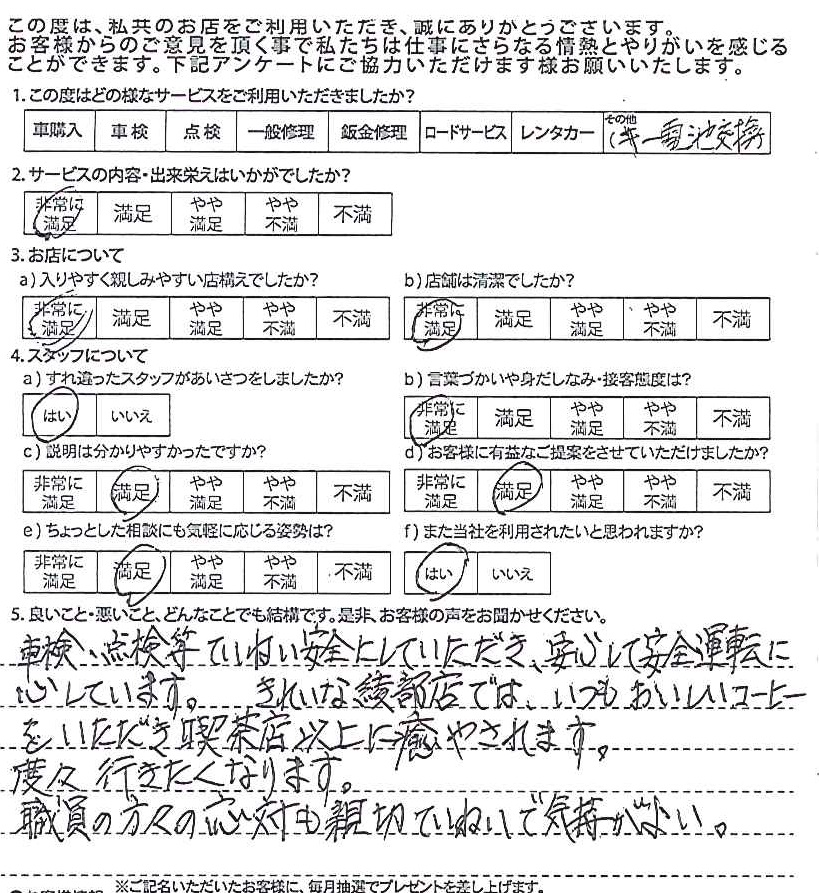 この度は、私共のお店をご利用いただき、誠にありがとうございます。
お客様からのご意見を頂く事で私たちは仕事にさらなる情熱とやりがいを感じる
ことができます。下記アンケートにご協力いただけます様お願いいたします。
1.この度はどの様なサービスをご利用いただきましたか?
車購入 車検 点検 一般修理 鈑金修理 ロードサービス レンタカー その他 (キー電池交換)
2.サービスの内容・出来栄えはいかがでしたか?
非常に満足 満足 やや満足 やや不満 不満
3.お店について
a)入りやすく親しみやすい店構えでしたか? b)店舗は清潔でしたか?
非常に満足 満足 やや満足 やや不満 不満 非常に満足 満足 やや満足 やや不満 不満
4.スタッフについて
a)すれ違ったスタッフがあいさつをしましたか? b)言葉づかいや身だしなみ・接客態度は?
はい いいえ 非常に満足 満足 やや満足 やや不満 不満
c)説明は分かりやすかったですか? d)お客様に有益なご提案をさせていただけましたか?
非常に満足 満足 やや満足 やや不満 不満 非常に満足 満足 やや満足 やや不満 不満
e)ちょっとした相談にも気軽に応じる姿勢は? f)また当社を利用されたいと思われますか?
非常に満足 満足 やや満足 やや不満 不満 はい いいえ
5.良いこと・悪いこと、どんなことでも結構です。是非、お客様の声をお聞かせください。
車検、点検等ていねい安全にしていただき、安心して安全運転に
心しています。 きれいな綾部店では、いつもおいしいコーヒー
をいただき喫茶店以上に癒やされます。
度々行きたくなります。
職員の方々の応対も親切ていねいで気持がよい。
※ご記名いただいたお客様に、毎月抽選でプレゼントを差し上げます。